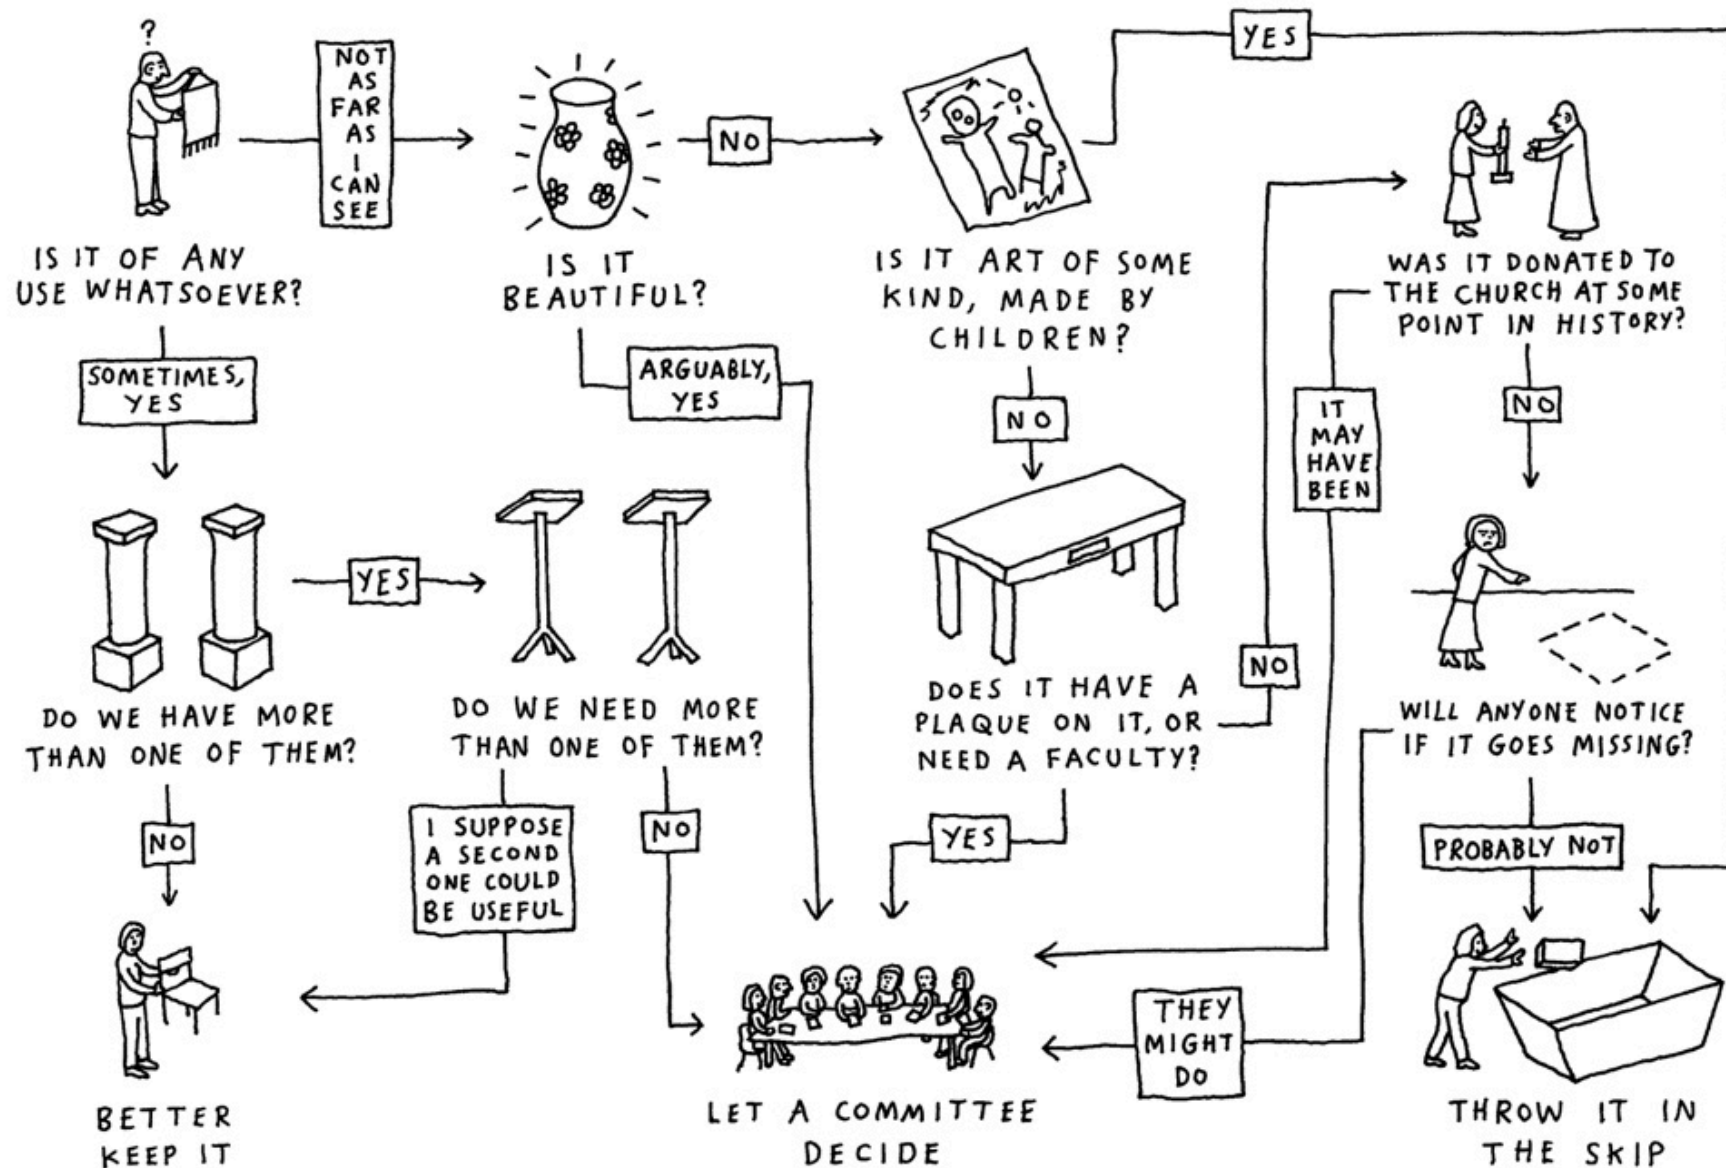 ?
NOT
AS
FAR
AS
I
CAN
SEE
NO
YES
IS IT OF ANY
USE WHATSOEVER?
IS IT
BEAUTIFUL?
IS IT ART OF SOME
KIND, MADE BY
CHILDREN?
WAS IT DONATED TO
THE CHURCH AT SOME
POINT IN HISTORY?
SOMETIMES,
YES
ARGUABLY,
YES
NO
IT
MAY
HAVE
BEEN
NO
YES
DO WE HAVE MORE
THAN ONE OF THEM?
DO WE NEED MORE
THAN ONE OF THEM?
DOES IT HAVE A
PLAQUE ON IT, OR
NEED A FACULTY?
NO
WILL ANYONE NOTICE
IF IT GOES MISSING?
NO
I SUPPOSE
A SECOND
ONE COULD
BE USEFUL
NO
YES
PROBABLY NOT
THEY
MIGHT
DO
BETTER
KEEP IT
LET A COMMITTEE
DECIDE
THROW IT IN
THE SKIP